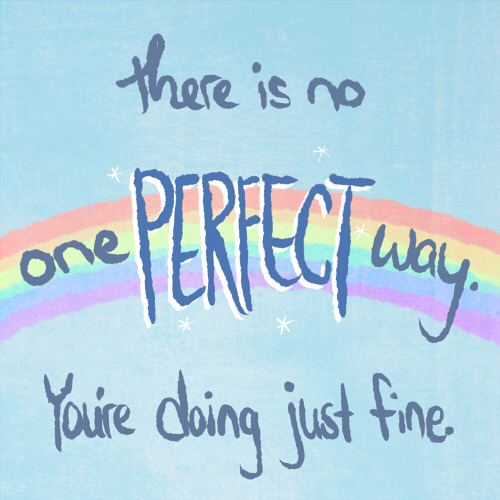 there is no
one PERFECT way.
You're doing just fine.